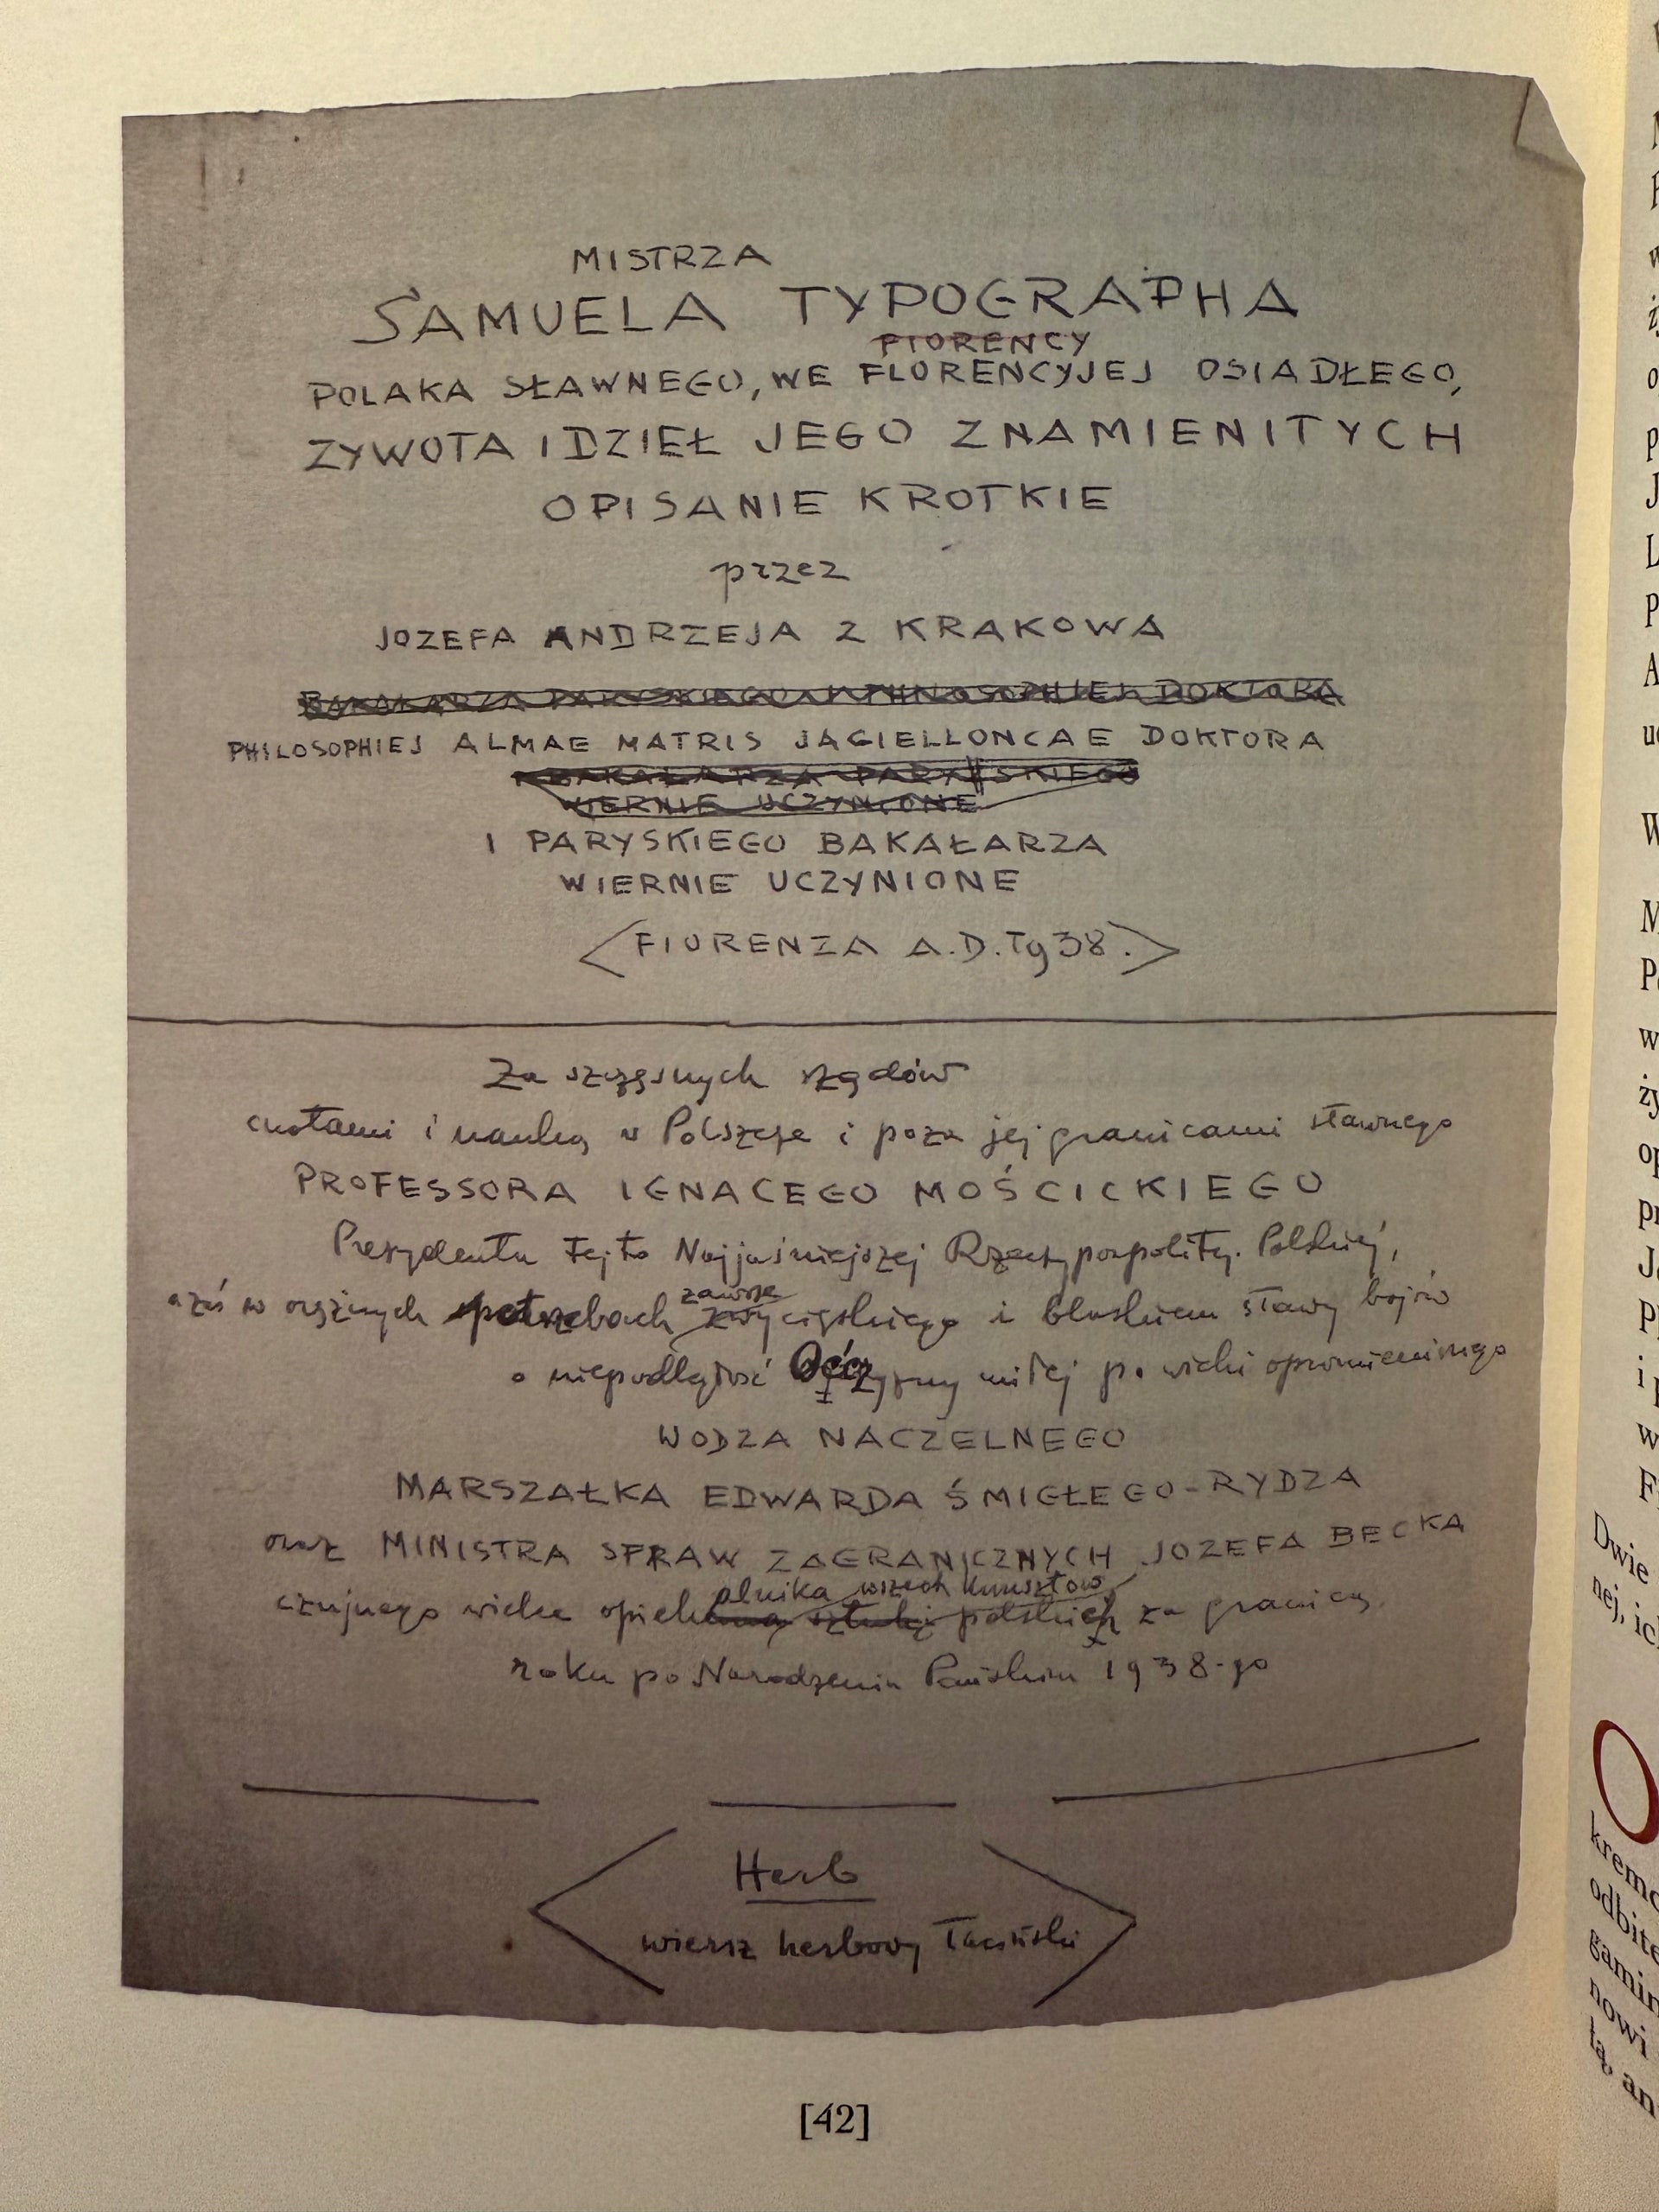 MISTRZA
SAMUELA TYPOGRAPHA
FIORENCY
POLAKA SŁAWNEGO, WE FLORENCYJEJ OSIADŁEGO,
ZYWOTA I DZIEŁ JEGO ZNAMIENITYCH
OPISANIE KROTKIE
przez
JOZEFA ANDRZEJA Z KRAKOWA
BAKAŁARZA PARYSKIEGO I PHILOSOPHIEJ DOKTORA
PHILOSOPHIEJ ALMAE MATRIS JAGIELLONCAE DOKTORA
BAKAŁARZA PARYSKIEGO
WIERNIE UCZYNIONE
I PARYSKIEGO BAKAŁARZA
WIERNIE UCZYNIONE
<FIORENZA A.D. 1938.>
Za szczęsnych rządów
cnotami i nauką w Polszcze i poza jej granicami sławnego
PROFESSORA IGNACEGO MOŚCICKIEGO
Prezydenta tejto Najjaśniejszej Rzeczypospolitej Polskiej,
zaś w orężnych potrzebach zawsze zwycięskiego i blaskiem sławy bojów
o niepodległość Ojczyzny miłej po wieki opromienionego
WODZA NACZELNEGO
MARSZAŁKA EDWARDA ŚMIGŁEGO-RYDZA
oraz MINISTRA SPRAW ZAGRANICZNYCH JOZEFA BECKA
alnika wszech kunsztow
czujnego wielce opiek sztuki polskich za granicą
roku po Narodzeniu Pańskim 1938-go
Herb
wiersz herbowy łaciński
[42]
Dwie
nej,
O
kremo
odbite
nowi